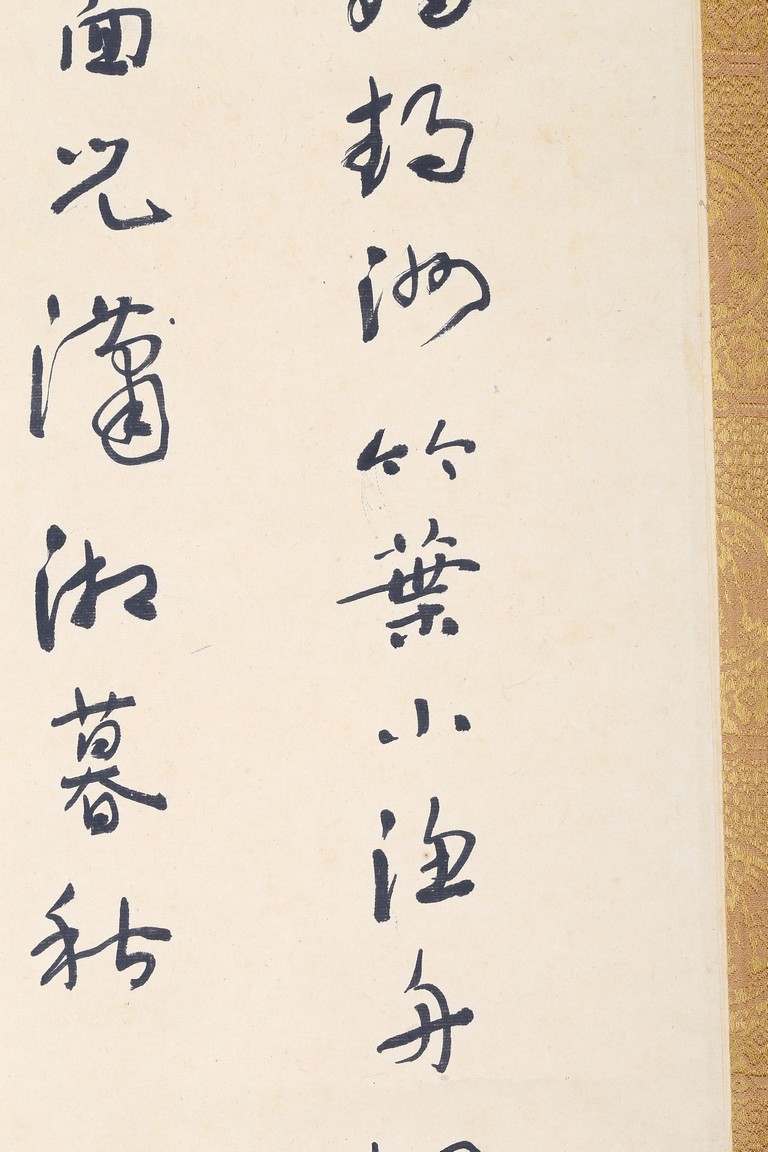 鞨洲竹葉小漁舟
面光瀟湘暮秋